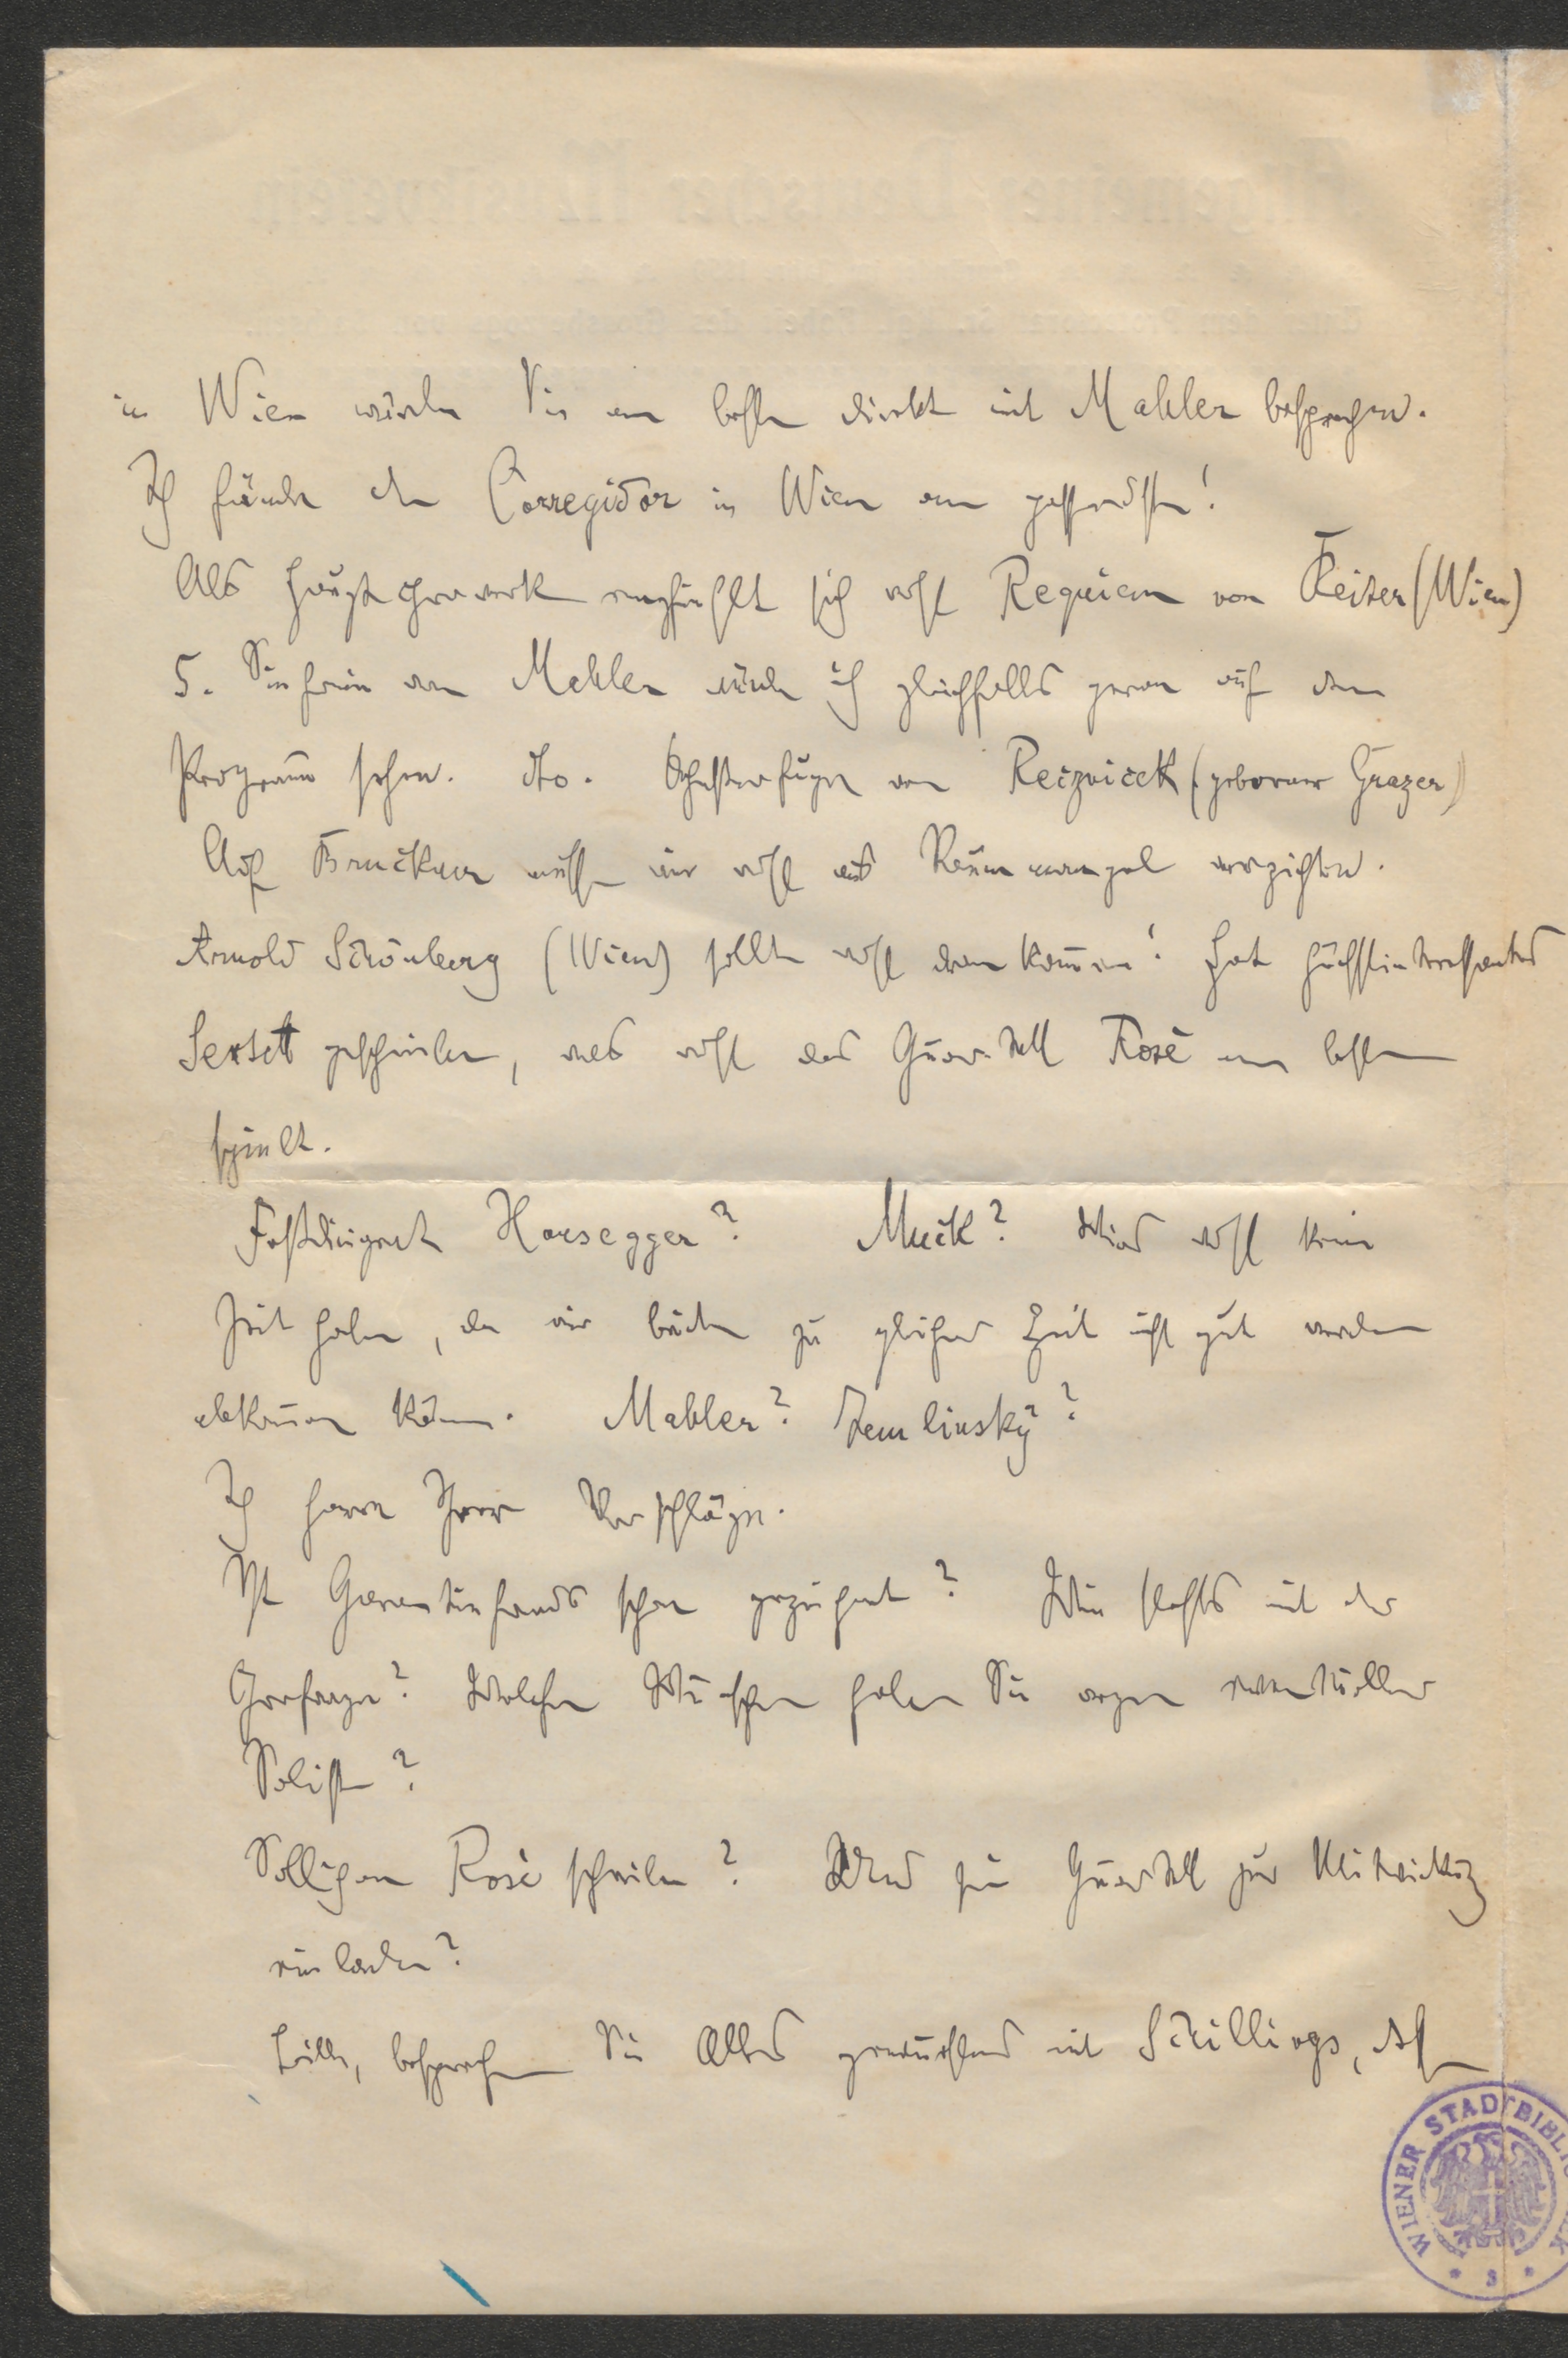 in Wien würden Sie am besten direkt mit Mahler besprechen.
Ich fände den Corregidor in Wien am gescheidsten!
Als Hauptchorwerk empfiehlt sich wohl Requiem von Reiter (Wien)
5. Sinfonie von Mahler würde ich gleichfalls gerne auf dem
Programm sehen. dto. Schusterfuge von Reiznicek (geborener Grazer)
Auf Bruckner müssen wir wohl aus Raummangel verzichten.
Arnold Schönberg (Wien) sollte wohl dran kom̅en! Hat höchstinteressantes
Sextett geschrieben, was wohl das Quartett Rosé am besten
spielt.
Festdirigent Hausegger? Muck? Wird wohl keine
Zeit haben, da wir beide zu gleicher Zeit nicht gut werden
abkom̅en könen. Mahler? Zemlinsky?
Ich harre Ihrer Vorschläge.
Ist Garantiefonds schon gezeichnet? Wie stehts mit der
Chorfrage? Welche Wünsche haben Sie wegen eventueller
Solisten?
Soll ich an Rosé schreiben? Und sein Quartett zur Mitwirkung
einladen?
Bitte, besprechen Sie Alles gewünschte mit Schillings,
WIENER STADTBIBL